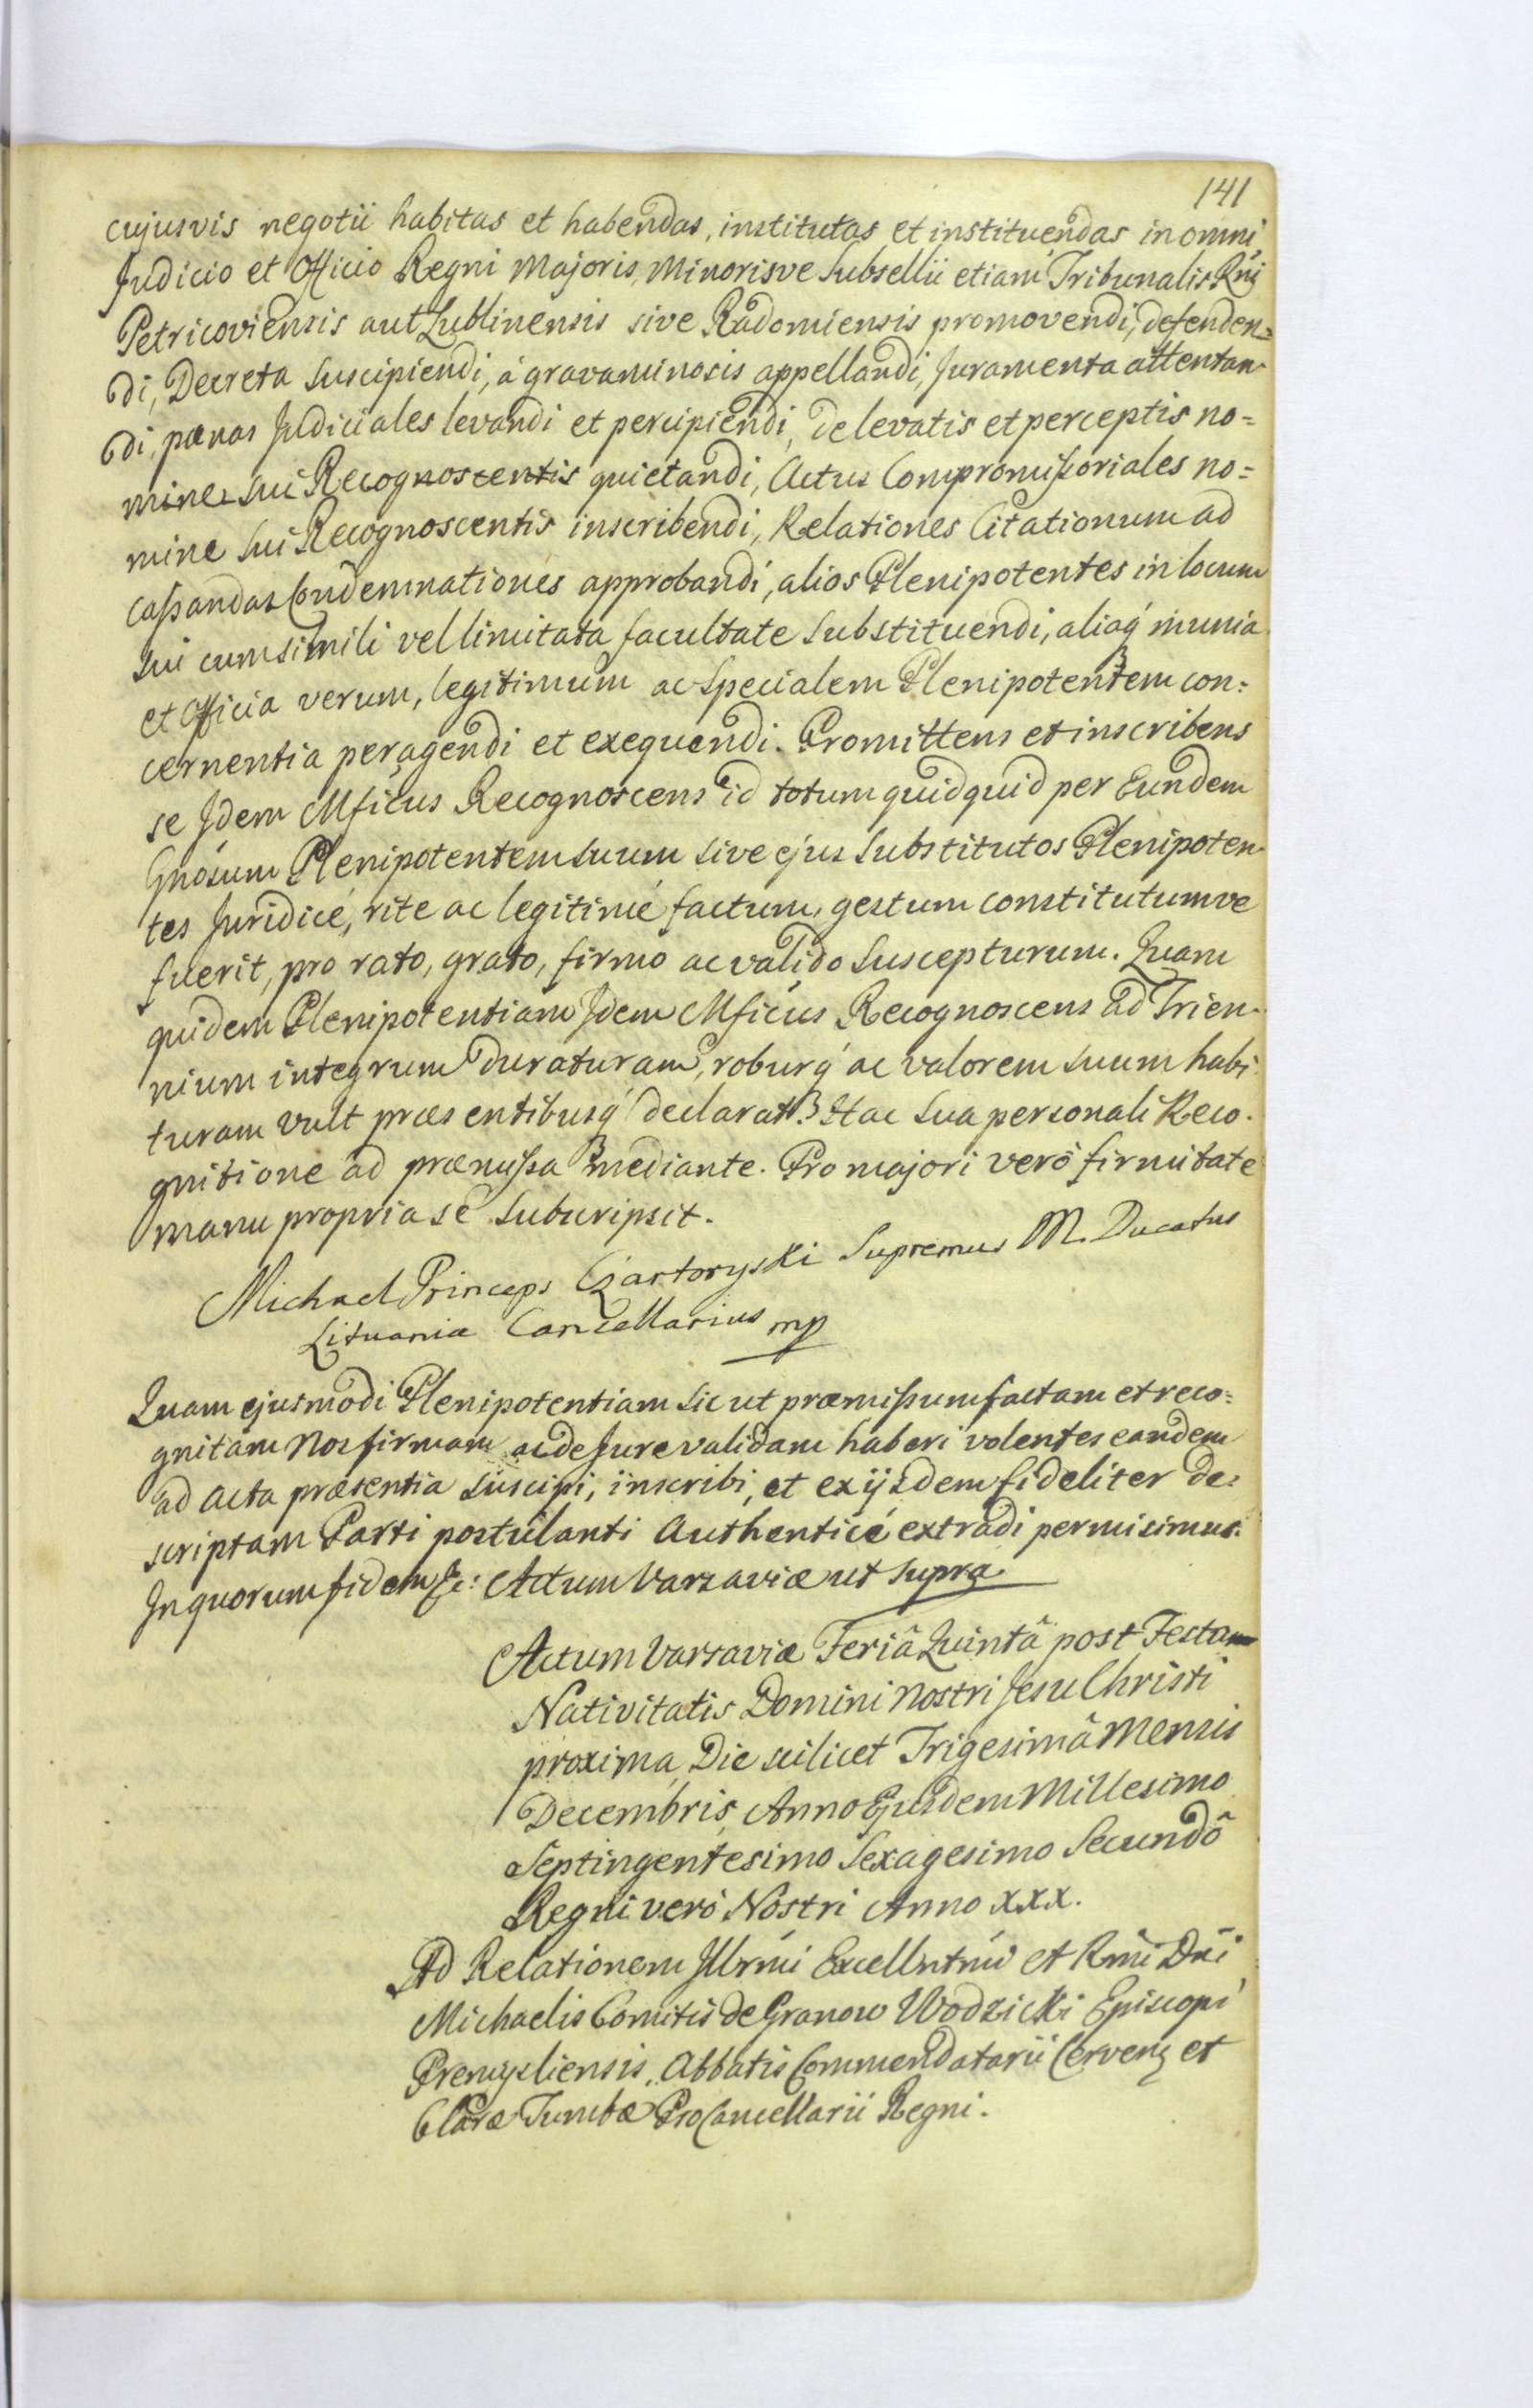 141
cujusvis negotii habitas et habendas, institutas et instituendas in omni
Judicio et Officio Regni Majoris, Minorisve Subsellii etiam Tribunalis Rni
Petricoviensis aut Lublinensis sive Radomiensis promovendi, defenden=
di, Decreta suscipiendi, à gravaminosis appellandi, Juramenta attentan
di, pænas Judiciales levandi et percipiendi, de levatis et perceptis no=
mine sui Recognoscentis quietandi, Actus Compromissoriales no=
mine sui Recognoscentis inscribendi, Relationes Citationum ad
cassandas Condemnationes approbandi, alios Plenipotentes in locum
sui cum simili vel limitata facultate substituendi, aliaq́ munia
et Officia verum, legitimum ac specialem Plenipotentem con=
cernentia peragendi et exequendi. Promittens et inscribens
se Idem Mficus Recognoscens id totum quidquid per Eundem
Gnosum Plenipotentem suum sive ejus substitutos Plenipoten
tes Juridicé, rite ac legitimé factum, gestum constitutumve
fuerit, pro rato, grato, firmo ac valido suscepturum. Quam
quidem Plenipotentiam Idem Mficus Recognoscens ad Trien
nium integrum duraturam, roburq́ ac valorem suum habi
turam vult præsentibusq́ declarat. Hac sua personali Reco
gnitione ad præmissa mediante. Pro majori verò firmitate
manu propria se subscripsit.
Michael Princeps Czartoryski Supremus M. Ducatus
Lituaniæ Cancellarius mp
Quam ejusmodi Plenipotentiam sic ut præmissum factam et reco=
gnitam Nos firmam ac de Jure validam haberi volentes eandem
ad Acta præsentia suscipi, inscribi, et ex ijsdem fideliter de=
scriptam Parti postulanti Authenticé extradi permisimus.
In quorum fidem &c: Actum Varsaviæ ut supra
Actum Varsaviæ Feriâ Quintâ post Festam
Nativitatis Domini Nostri Jesu Christi
proxima, Die scilicet Trigesimâ Mensis
Decembris, Anno Ejusdem Millesimo
Septingentesimo Sexagesimo Secundô
Regni verò Nostri Anno xxx.
Ad Relationem Illrmi Excellntmi et Rmi Dni
Michaelis Comitis de Granow Wodzicki Episcopi
Premysliensis, Abbatis Commendatarii Cervenz et
Claræ Tumbæ ProCancellarii Regni.